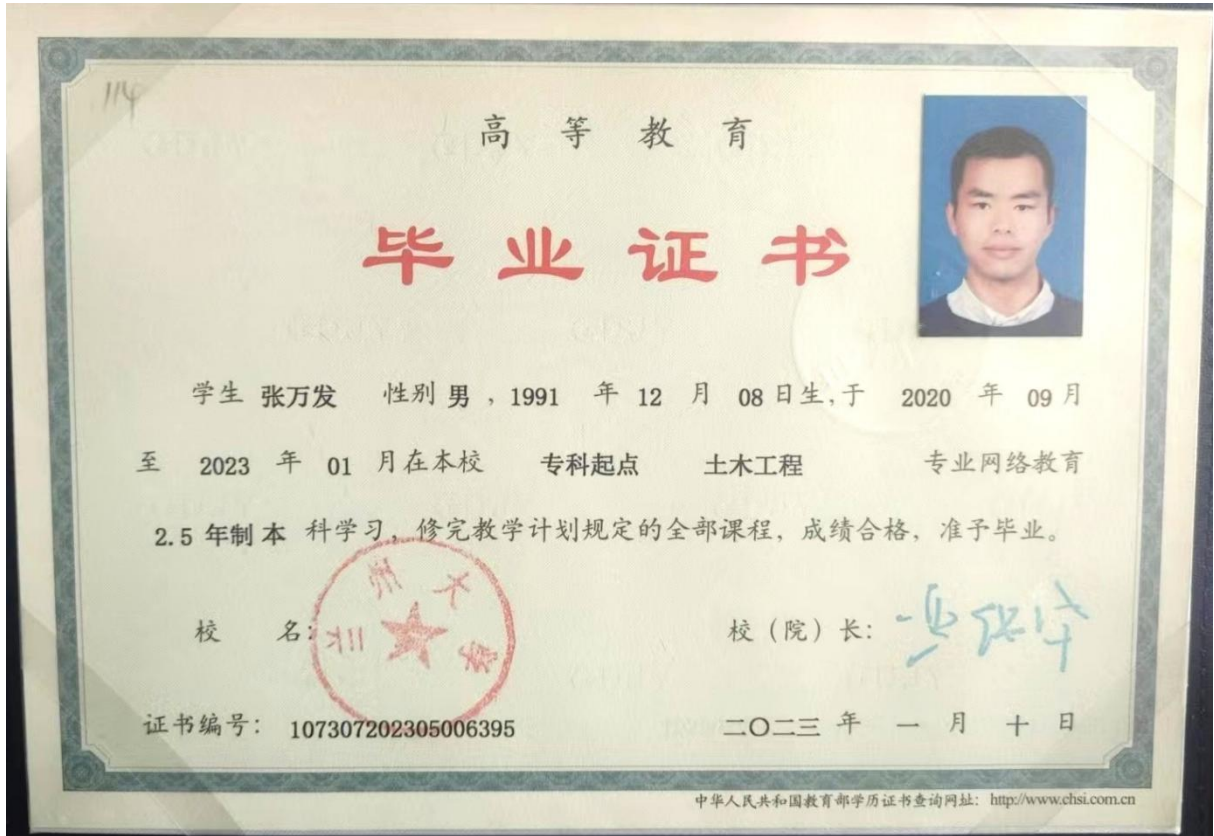 114
高等教育
毕业证书
学生 张万发 性别 男 ，1991 年 12 月 08 日生,于 2020 年 09 月
至 2023 年 01 月在本校 专科起点 土木工程 专业网络教育
2.5 年制 本 科学习，修完教学计划规定的全部课程，成绩合格，准予毕业。
兰州大学
校 名： 校（院）长：
证书编号： 107307202305006395 二〇二三 年 一 月 十 日
中华人民共和国教育部学历证书查询网址：http://www.chsi.com.cn